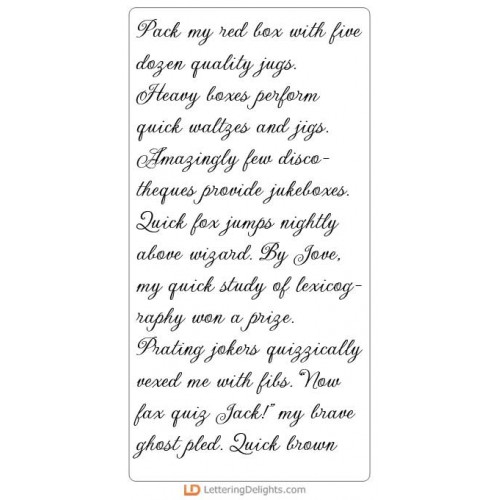 Pack my red box with five
dozen quality jugs.
Heavy boxes perform
quick waltzes and jigs.
Amazingly few disco-
theques provide jukeboxes.
Quick fox jumps nightly
above wizard. By Jove,
my quick study of lexicog-
raphy won a prize.
Prating jokers quizzically
vexed me with fibs. "Now
fax quiz Jack!" my brave
ghost pled. Quick brown
LD LetteringDelights.com